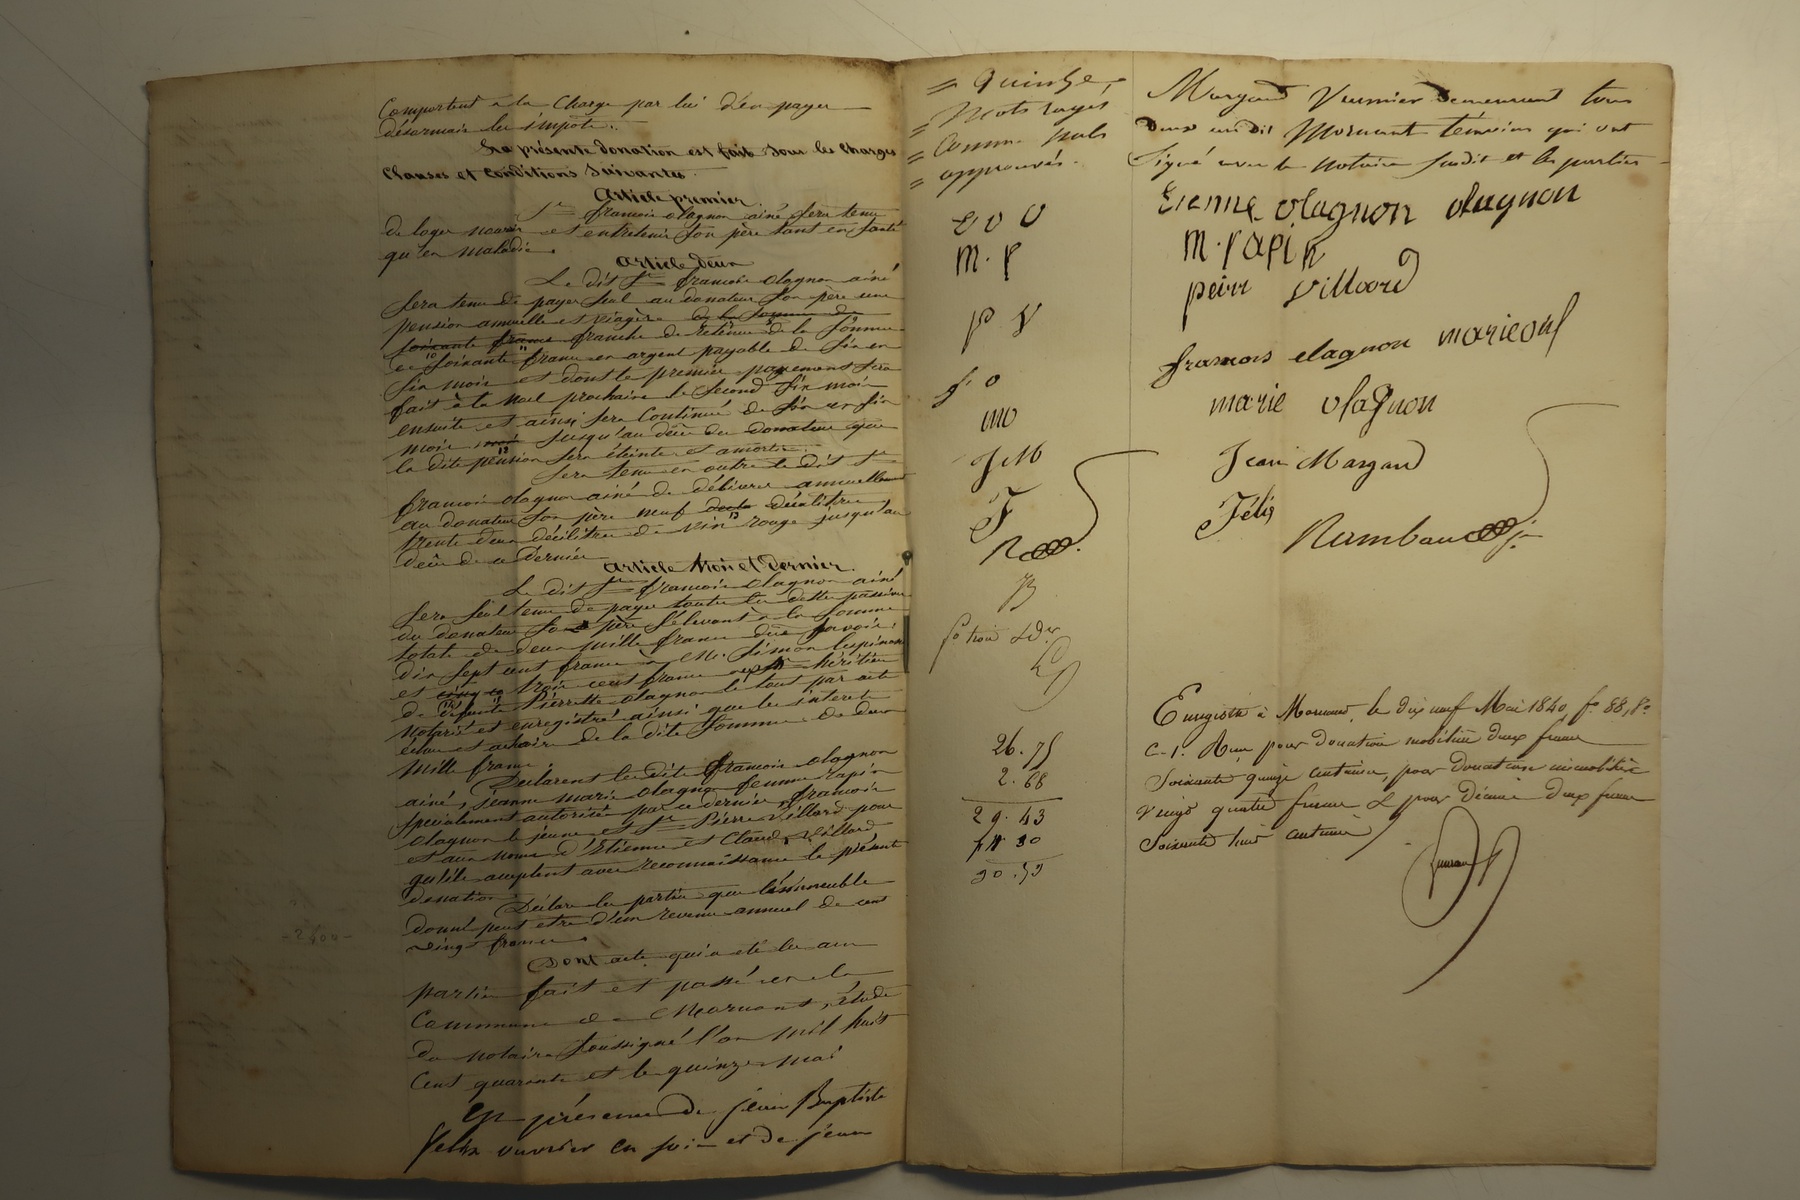 Comportent à la Charge par lui d'en payer
désormais les impots.
La présente donation est faite sous les charges
Clauses et Conditions Suivantes.
Article premier.
Sr françois olagnon ainé Sera tenu
de loger nourir et entretenir Son père tant en Santé
qu'en maladie.
Article deux
Le dit Sr françois olagnon ainé
Sera tenu de payer Seul au donateur Son père une
pension annuelle et viagère de la Somme de
Soixante francs franche de retenue de la Somme
de Soixante francs en argent payable de Six en
Six mois et dont le premier payement Sera
fait à la noel prochaine le Second Six mois
ensuite et ainsi Sera Continué de Six en Six
mois jusqu'au décès du donateur que
la dite pension Sera éteinte et amortie.
Sera tenu en outre le dit Sr
françois olagnon ainé de délivrer annuellement
au donateur Son père neuf décalitres
trente deux décilitres de vin rouge jusqu'au
décès de ce dernier
Article trois et dernier.
Le dit Sr françois olagnon ainé
Sera Seul tenu de payer toutes les dettes passives
du donateur Son père S'élevant à la Somme
totale de deux mille francs dûs Savoir:
dix Sept cent francs à Mr. Simon lespinasse
et trois cent francs aux héritiers
de défunte Pierrette olagnon le tout par acte
notarié et enregistré ainsi que les intérets
échus et à échoir de la dite Somme de deux
mille francs.
Déclarent les dits françois olagnon
ainé, jeanne marie olagnon femme papin
spécialement autorisée par ce dernier, françois
olagnon le jeune et Sr Pierre Villard pour
et aux noms d'Etienne et Claude Villard
qu'ils acceptent avec reconnaissance la présente
donation.
Déclare les parties que l'immeuble
donné peut etre d'un revenu annuel de cent
vingt francs.
Dont acte qui a été lu aux
parties fait et passé en la
Commune de Mornant, étude
du notaire Soussigné l'an mil huit
Cent quarante et le quinze mai
En présence de jean Baptiste
felix ouvrier en soie et de jean
= Quinze
= Mots rayés
= Comme nuls
= approuvés.
E O O
M. P
P V
f. O
mo
J M
F
R
Margand Veumier demeurant tous
deux au dit Mornant témoins qui ont
Signé avec le notaire Susdit et les parties
Etienne olagnon olagnon
M. Papin
peirr villoord
framois olagnon
marie olagnon
Jean Margand
Félix
Rambaud jne
26. 75
2. 68
29. 43
30. 53
Enregistré à Mornant, le dix neuf Mai 1840 fo. 88, Ro
C. 1. Reçu pour donation mobilière deux francs
Soixante quinze centimes, pour donation immobilière
vingt quatre francs & pour décime deux francs
Soixante huit centimes